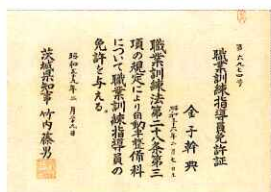 第六八七四号
職業訓練指導員免許証
金子幹興
昭和二十六年二月七日生
職業訓練法第二十八条第三
項の規定により自動車整備科
について職業訓練指導員の
免許を与える。
昭和五十九年二月二十九日
茨城県知事 竹内藤男